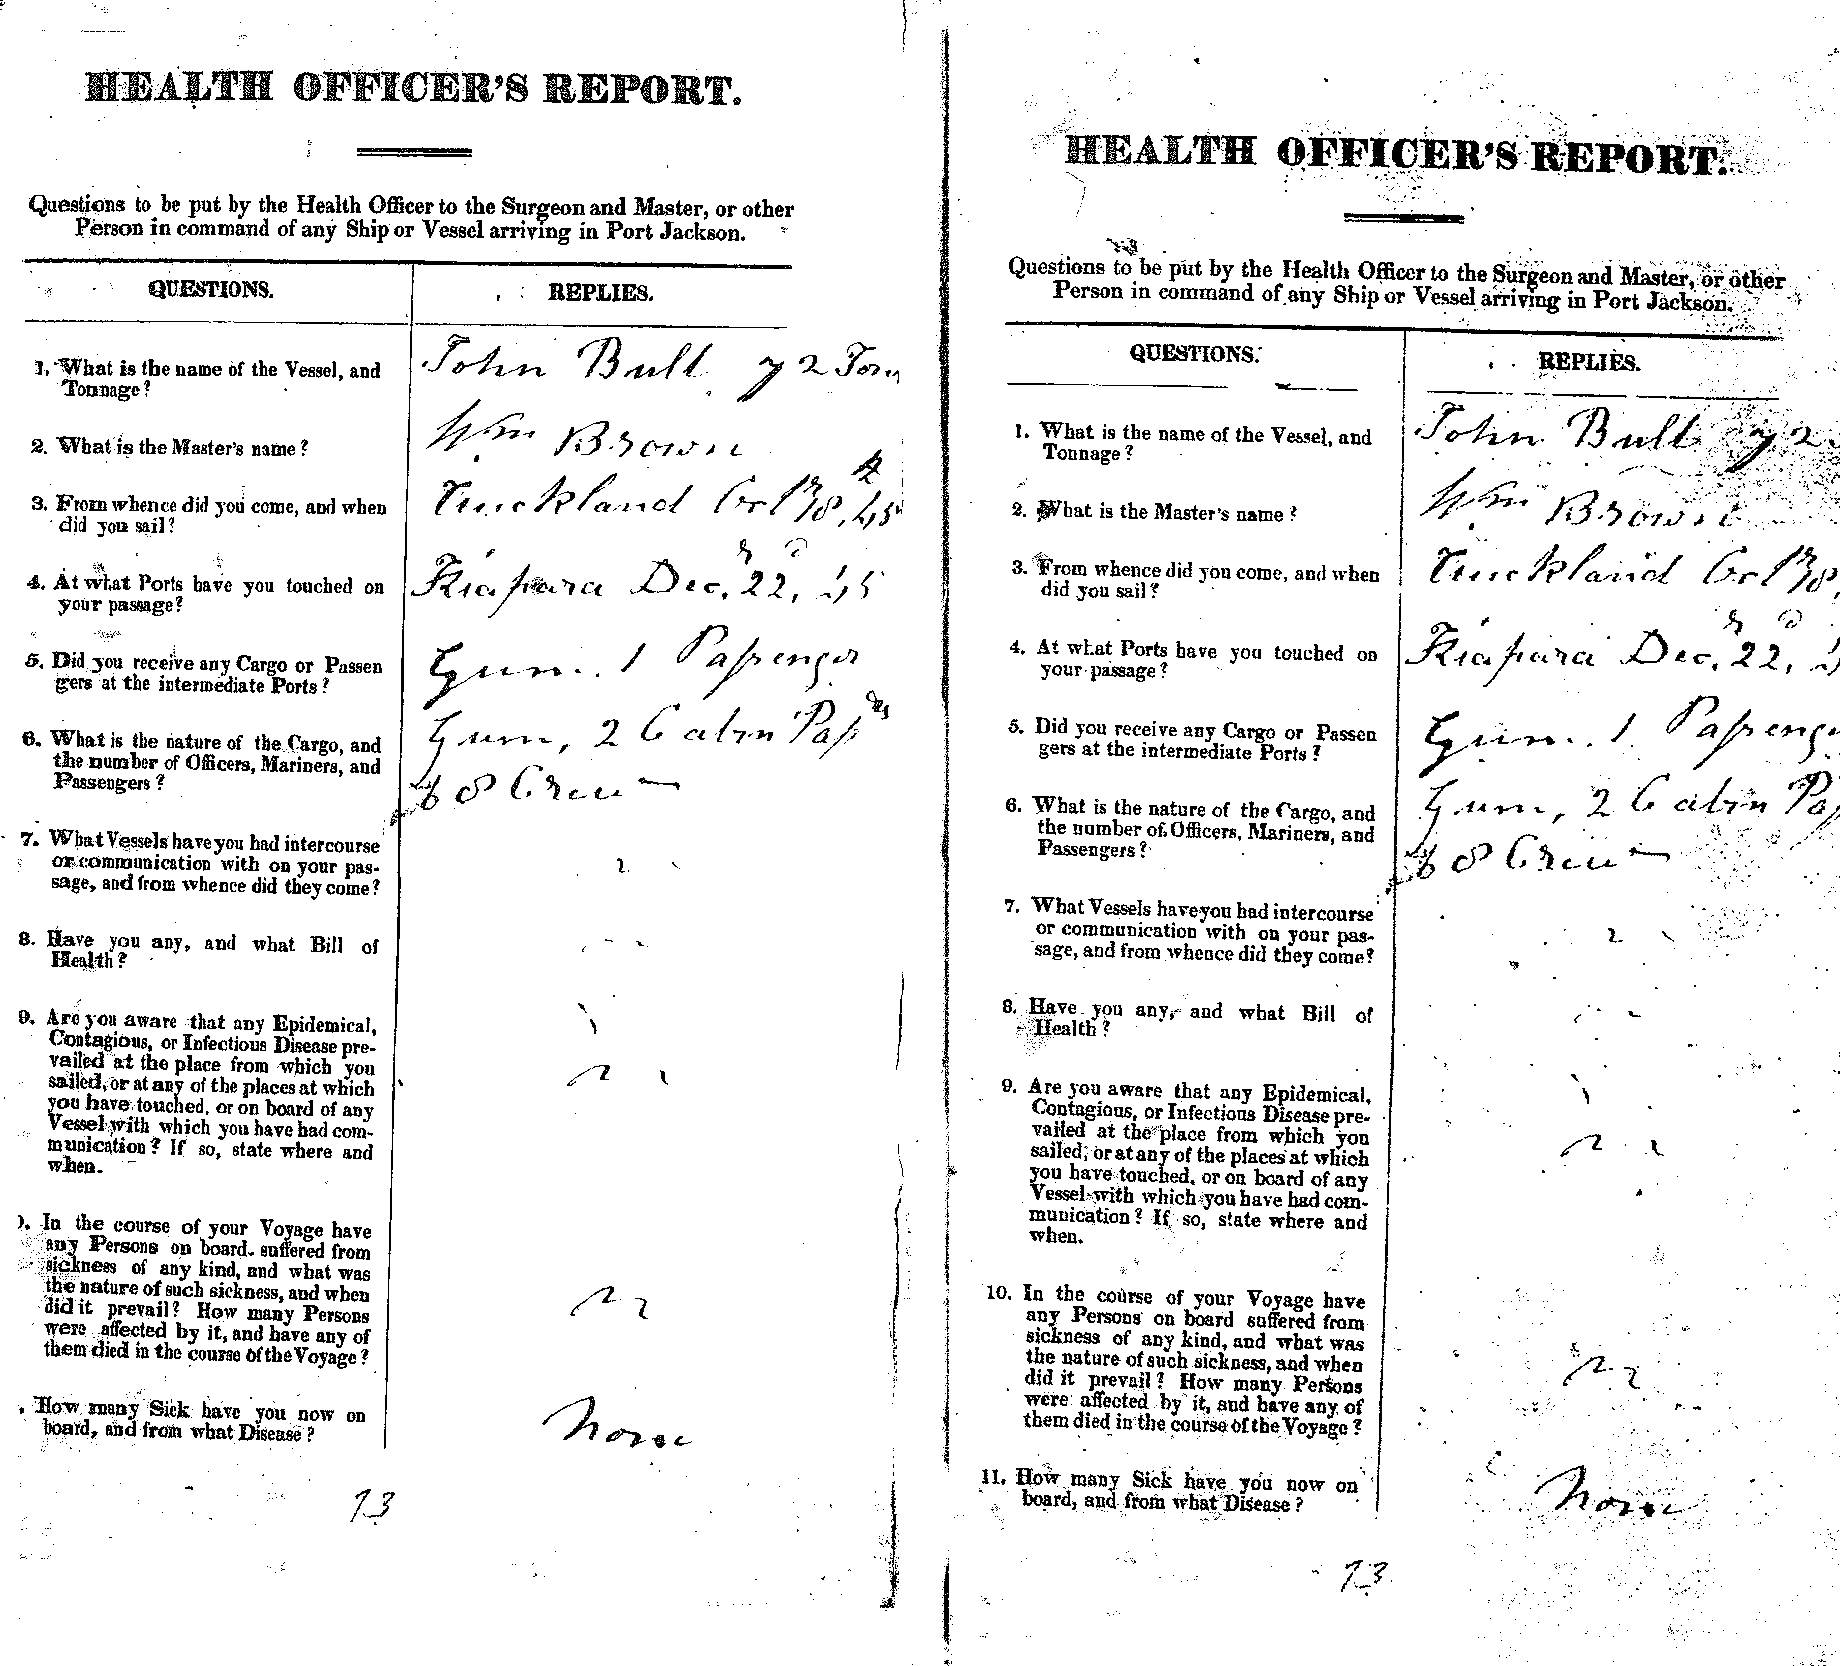 HEALTH OFFICER'S REPORT.
Questions to be put by the Health Officer to the Surgeon and Master, or other
Person in command of any Ship or Vessel arriving in Port Jackson.
QUESTIONS. REPLIES.
1. What is the name of the Vessel, and
Tonnage?
John Bull 72 Tons
2. What is the Master's name?
Wm Brown
3. From whence did you come, and when
did you sail?
Auckland Octr 8, 45
4. At what Ports have you touched on
your passage?
Kiapara Decr 22d, 45
5. Did you receive any Cargo or Passen
gers at the intermediate Ports?
Gum. 1 Passenger
6. What is the nature of the Cargo, and
the number of Officers, Mariners, and
Passengers?
Gum, 2 Cabin Pass
8 Crew
7. What Vessels have you had intercourse
or communication with on your pas-
sage, and from whence did they come?
8. Have you any, and what Bill of
Health?
9. Are you aware that any Epidemical,
Contagious, or Infectious Disease pre-
vailed at the place from which you
sailed, or at any of the places at which
you have touched, or on board of any
Vessel with which you have had com-
munication? If so, state where and
when.
). In the course of your Voyage have
any Persons on board suffered from
sickness of any kind, and what was
the nature of such sickness, and when
did it prevail? How many Persons
were affected by it, and have any of
them died in the course of the Voyage?
. How many Sick have you now on
board, and from what Disease?
None
73
HEALTH OFFICER'S REPORT.
Questions to be put by the Health Officer to the Surgeon and Master, or other
Person in command of any Ship or Vessel arriving in Port Jackson.
QUESTIONS. REPLIES.
1. What is the name of the Vessel, and
Tonnage?
John Bull 72
2. What is the Master's name?
Wm Brown
3. From whence did you come, and when
did you sail?
Auckland Octr 8,
4. At what Ports have you touched on
your passage?
Kiapara Decr 22d,
5. Did you receive any Cargo or Passen
gers at the intermediate Ports?
Gum. 1 Passenge
6. What is the nature of the Cargo, and
the number of Officers, Mariners, and
Passengers?
Gum, 2 Cabin Pas
8 Crew
7. What Vessels have you had intercourse
or communication with on your pas-
sage, and from whence did they come?
8. Have you any, and what Bill of
Health?
9. Are you aware that any Epidemical,
Contagious, or Infectious Disease pre-
vailed at the place from which you
sailed, or at any of the places at which
you have touched, or on board of any
Vessel with which you have had com-
munication? If so, state where and
when.
10. In the course of your Voyage have
any Persons on board suffered from
sickness of any kind, and what was
the nature of such sickness, and when
did it prevail? How many Persons
were affected by it, and have any of
them died in the course of the Voyage?
11. How many Sick have you now on
board, and from what Disease?
None
73